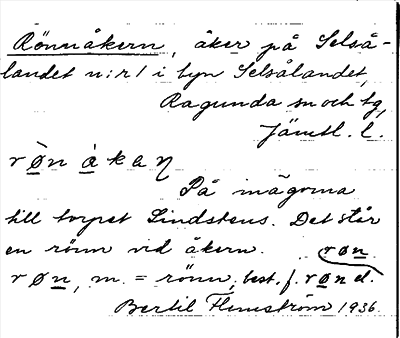 Rönnåkern, åker på Selså-
landet n:r 1 i byn Selsålandet,
Ragunda sn och tg,
Jämtl. l.
rø̀n àkaη
På inägorna
till torpet Lindstens. Det står
en rönn vid åkern. røn
røn, m. = rönn, best. f. rønel.
Bertil Flemström 1936.